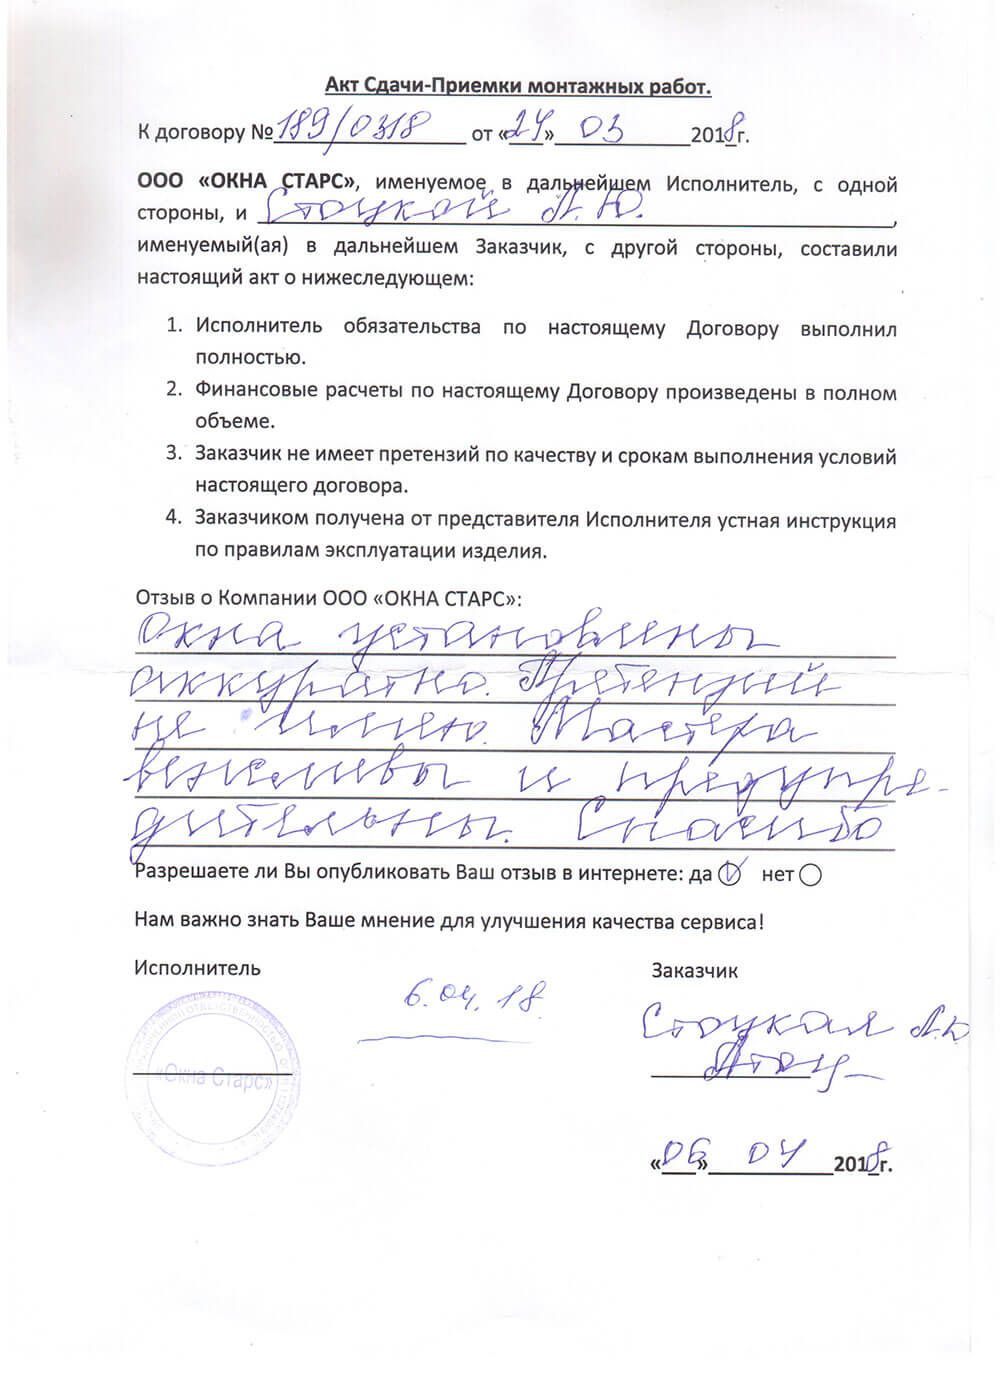 Акт Сдачи-Приемки монтажных работ.
К договору № 189/0318 от «24» 03 2018г.
ООО «ОКНА СТАРС», именуемое в дальнейшем Исполнитель, с одной
стороны, и Стоцкой Л.Ю.,
именуемый(ая) в дальнейшем Заказчик, с другой стороны, составили
настоящий акт о нижеследующем:
1. Исполнитель обязательства по настоящему Договору выполнил
полностью.
2. Финансовые расчеты по настоящему Договору произведены в полном
объеме.
3. Заказчик не имеет претензий по качеству и срокам выполнения условий
настоящего договора.
4. Заказчиком получена от представителя Исполнителя устная инструкция
по правилам эксплуатации изделия.
Отзыв о Компании ООО «ОКНА СТАРС»:
Окна установлены
аккуратно. Претензий
не имею. Мастера
вежливы и предупре-
дительны. Спасибо
Разрешаете ли Вы опубликовать Ваш отзыв в интернете: да нет
Нам важно знать Ваше мнение для улучшения качества сервиса!
Исполнитель
Заказчик
6.04.18.
Стоцкая Л.Ю.
«Окна Старс»
«06» 04 2018г.